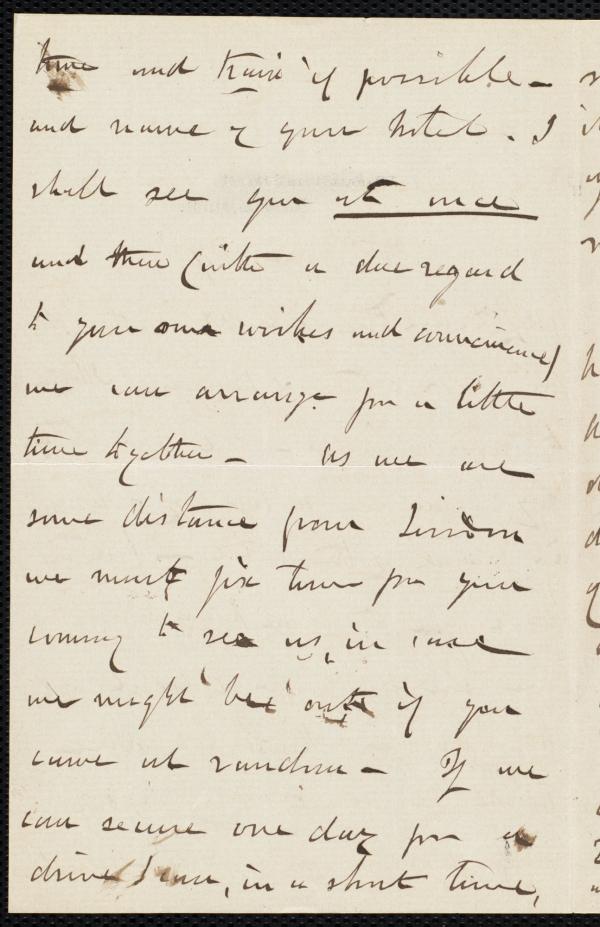 time and train if possible —
and name of your hotel. I
shall see you at once
and then (with a due regard
to your own wishes and convenience)
we can arrange for a little
time together — As we are
some distance from London
we must fix time for your
coming to see us, in case
we might be out if you
came at random — If we
can secure one day for a
drive I can, in a short time,